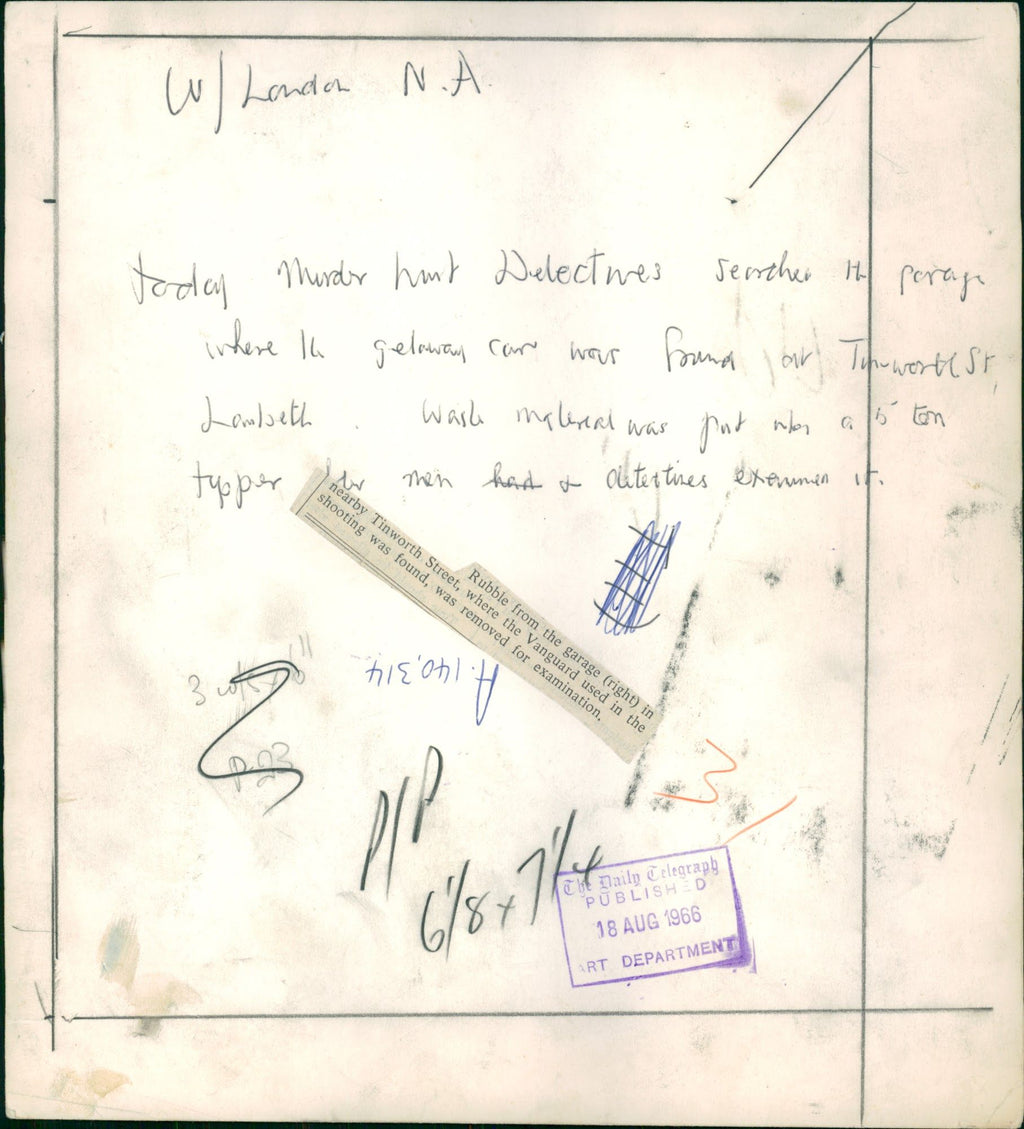 W/London N.A.
today Murder hunt Detectives searched the garage
where the getaway car was found at Tinworth St,
Lambeth. Waste material was put into a 5 ton
tipper men had & detectives examined it.
Rubble from the garage (right) in
nearby Tinworth Street, where the Vanguard used in the
shooting was found, was removed for examination.
A.140,314
P.23
P/P
6 1/8 x 7 1/4
The Daily Telegraph
PUBLISHED
18 AUG 1966
ART DEPARTMENT